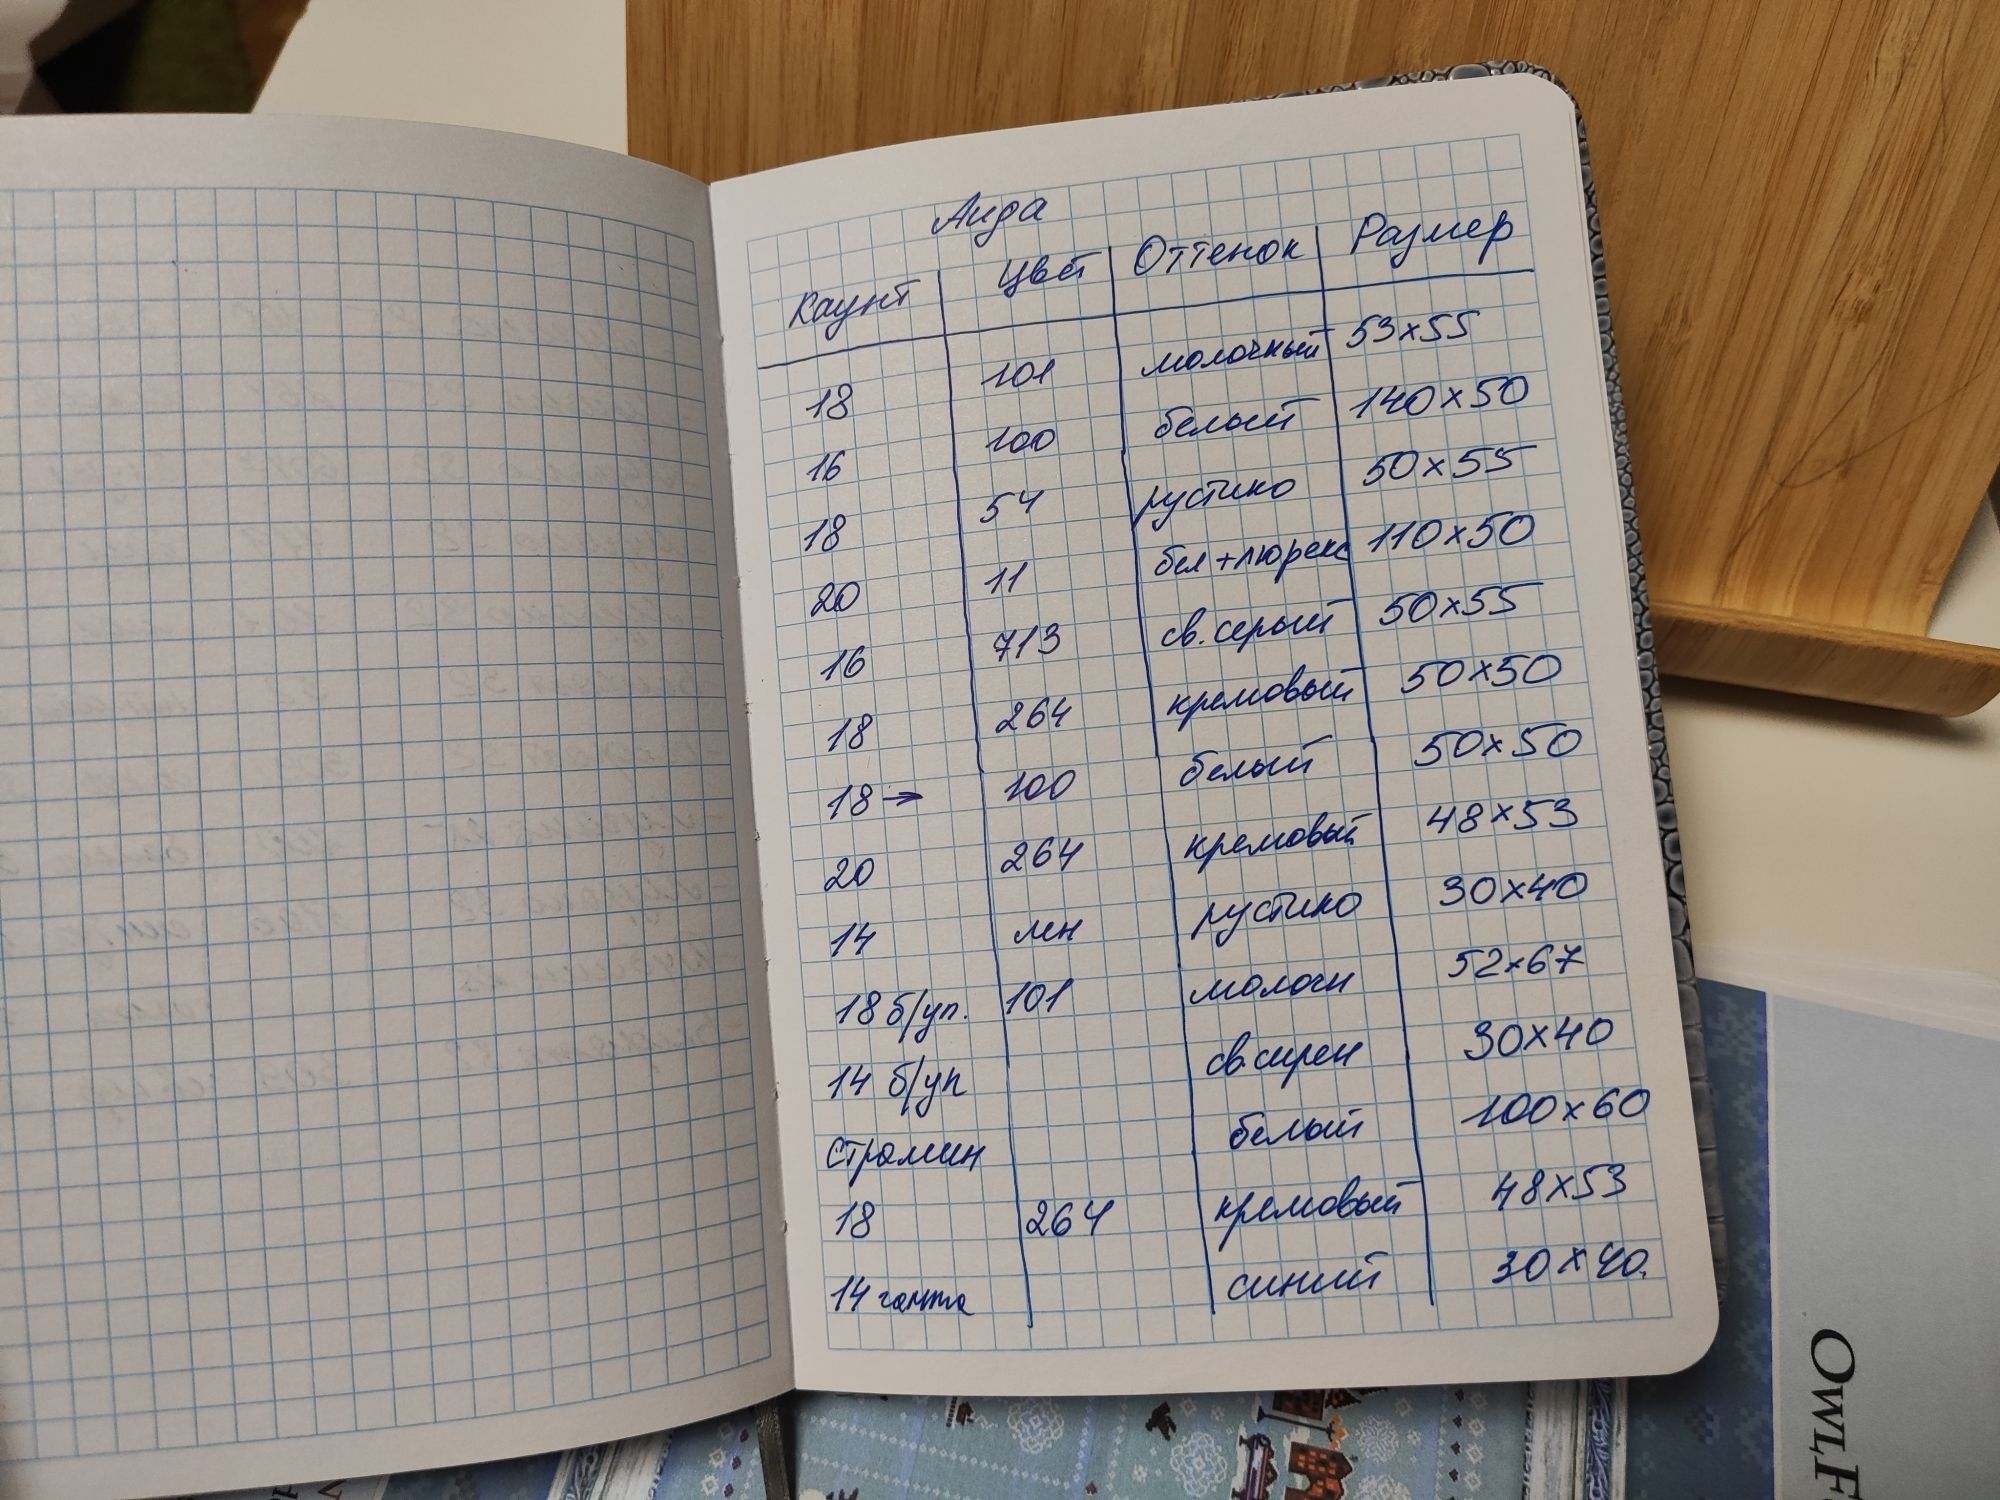 Аида
Каунт Цвет Оттенок Размер
18 101 молочный 53х55
16 100 белый 140х50
18 54 рустико 50х55
20 11 бел+люрекс 110х50
16 713 св.серый 50х55
18 264 кремовый 50х50
18→ 100 белый 50х50
20 264 кремовый 48х53
14 лен рустико 30х40
18 б/уп. 101 молочн 52х67
14 б/уп св.сирен 30х40
Страмин белый 100х60
18 264 кремовый 48х53
14 гамма синий 30х40.
OwlF